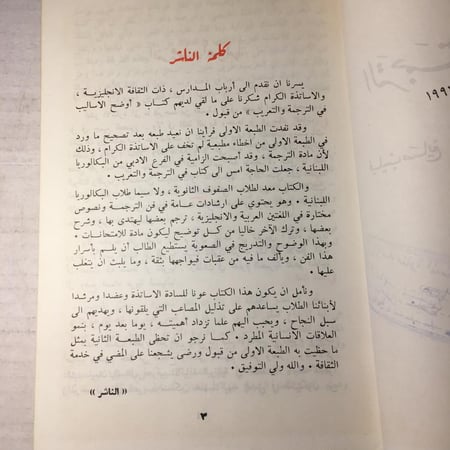 كلمة الناشر
يسرنا ان نقدم الى أرباب المدارس ، ذات الثقافة الانجليزية ،
والاساتذة الكرام شكرنا على ما لقي لديهم كتاب « أوضح الاساليب
في الترجمة والتعريب » من قبول .
وقد نفدت الطبعة الاولى فرأينا ان نعيد طبعه بعد تصحيح ما ورد
في الطبعة الاولى من اخطاء مطبعية لم تخف على الاساتذة الكرام ، وذلك
لأن مادة الترجمة ، وقد أصبحت الزامية في الفرع الادبي من البكالوريا
اللبنانية ، جعلت الحاجة امس الى كتاب في الترجمة والتعريب .
والكتاب معد لطلاب الصفوف الثانوية ، ولا سيما طلاب البكالوريا
اللبنانية . وهو يحتوي على ارشادات عامة في فن الترجمة ونصوص
مختارة في اللغتين العربية والانجليزية ، ترجم بعضها ليهتدى بها ، وشرح
بعضها ، وترك الآخر خاليا من كل توضيح ليكون مادة للامتحانات .
وبهذا الوضوح والتدريج في الصعوبة يستطيع الطالب أن يلم بأسرار
هذا الفن ، ويألف ما فيه من عقبات فيواجهها بثقة ، وما يلبث ان يتغلب
عليها .
ونأمل ان يكون هذا الكتاب عونا للسادة الاساتذة وعضدا ومرشدا
لأبنائنا الطلاب يساعدهم على تذليل المصاعب التي يلقونها ، ويهديهم الى
سبل النجاح ، ويحبب اليهم علما تزداد أهميته ، يوما بعد يوم ، بنمو
العلاقات الانسانية المطرد . كما نرجو ان تحظى الطبعة الثانية بمثل
ما حظيت به الطبعة الاولى من قبول ورضى يشجعنا على المضي في خدمة
الثقافة . والله ولي التوفيق .
« الناشر »
٣